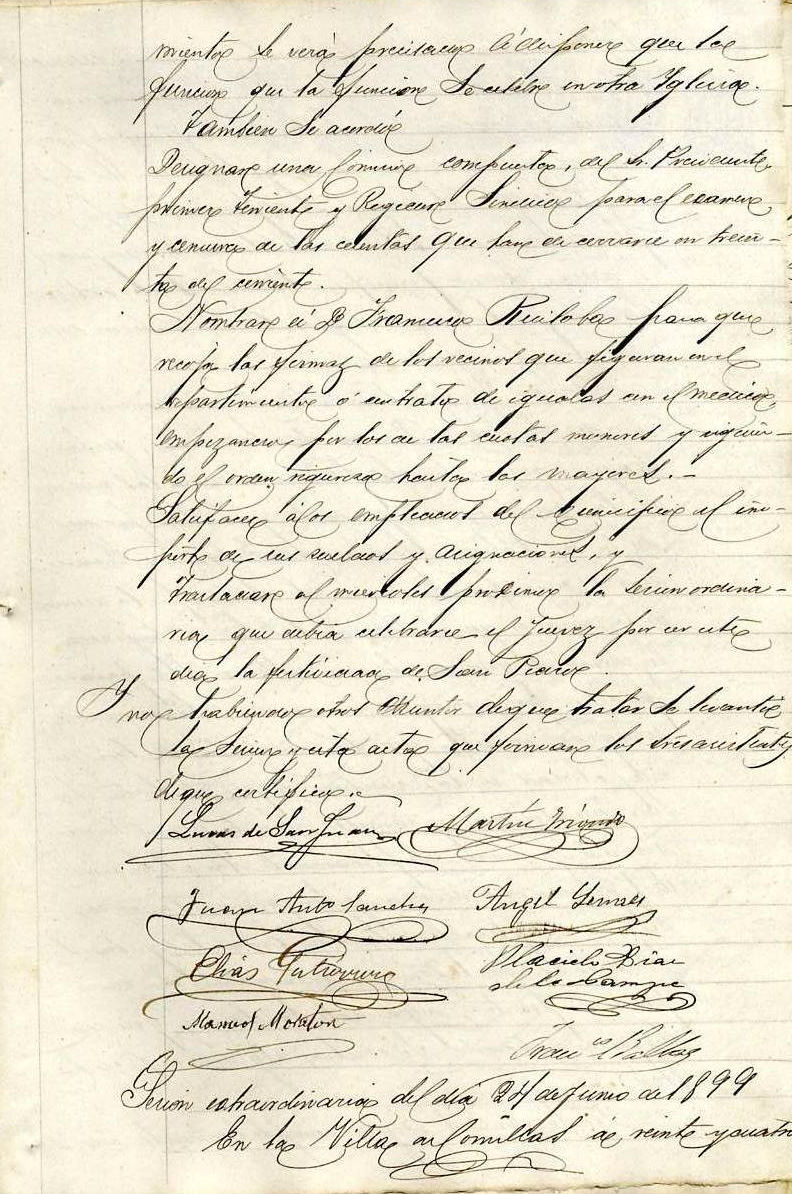 miento se verá precisado á disponer que la
funcion que la funcion se celebre en otra Yglesia.
Tambien se acordó
Designar una Comision compuesta, del Sr. Presidente,
primer teniente y Regidor Sindico para el examen
y censura de las cuentas que han de cerrarse en trein-
ta del corriente.
Nombrar á Dn Francisco Ruiloba para que
recoja las firmas de los vecinos que figuran en el
repartimiento ó contrato de igualas con el medico,
empezando por los de las cuotas menores y siguien-
do el orden riguroso hasta las mayores.-
Satisfacer á los empleados del Municipio el im-
porte de sus sueldos y asignaciones, y
trasladar al miercoles proximo la sesion ordina-
ria que debia celebrarse el Juevez por ser este
dia la festividad de San Pedro.
Y no habiendo otros asuntos de que tratar se levantó
la sesion y esta acta que firman los Sres asistentes
de que certifico.-
Lucas de San Juan Martín Yñigo
Juan Anto Sanchez Angel
Elías Gutierrez Placido Diaz
de la Campa
Manuel Moreton
Franco
Sesion extraordinaria del dia 24 de Junio de 1899
En la Villa de Comillas á veinte y cuatro